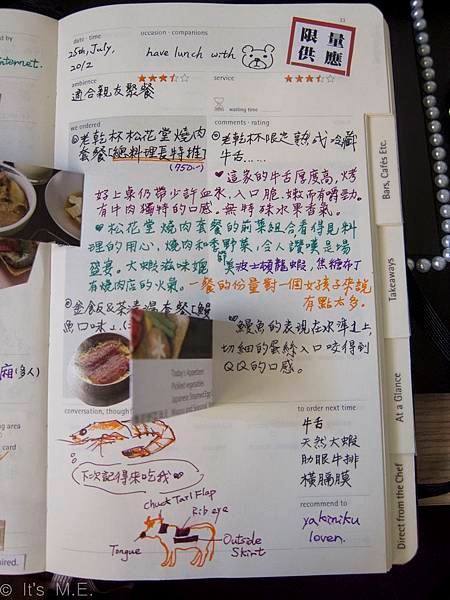 33
date · time
occasion · companions
25th, July,
2012
have lunch with
限量
供應
ambience
service
適合親友聚餐
waiting time
we ordered
comments · rating
老乾杯松花堂燒肉
套餐【總料理長特推】
(950.-)
老乾杯限定熟成冷藏
牛舌......
♥這家的牛舌厚度高,烤
好上桌仍帶少許血水,入口脆、嫩而有嚼勁。
有牛肉獨特的口感。無特殊水果香氣。
♥松花堂燒肉套餐的前菜組合看得見料
理的用心,燒肉和季野菜,令人讚嘆是場
盛宴。大蝦滋味媲美波士頓龍蝦,焦糖布丁
有燒肉店的火氣。一餐的份量對一個女孩子來說
有點太多。
套餐【鰻
魚口味】
♥鰻魚的表現在水準之上,
切細的蛋絲入口咬得到
QQ的口感。
Today's Appetizer
Pickled vegetables
Japanese Steamed Egg
conversation, though
to order next time
牛舌
天然大蝦
肋眼牛排
橫膈膜
下次記得來吃我♥
recommend to
yakiniku
lover.
Chuck Tail Flap
Rib eye
Outside
Skirt
Tongue
Bars, Cafés Etc.
Takeaways
At a Glance
Direct from the Chef
ed by
internet.
廂(多人)
ing area
card
pired.
© It's M.E.